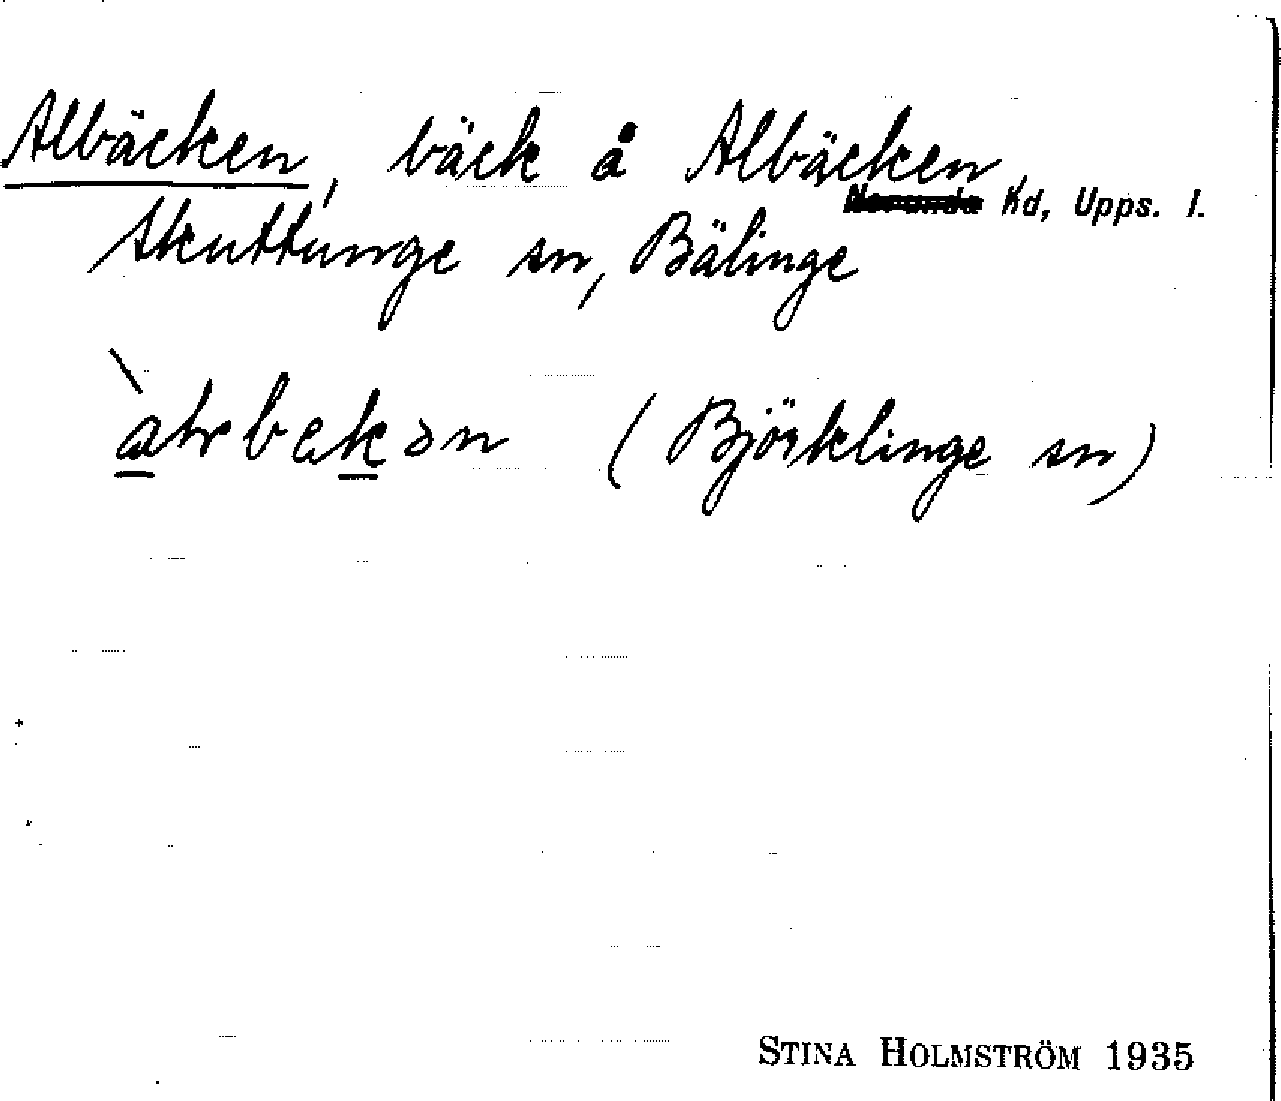 Albäcken, bäck å Albäcken,
Norunda Kd, Upps. l.
Skuttunge sn, Bälinge
(Björklinge sn)
STINA HOLMSTRÖM 1935